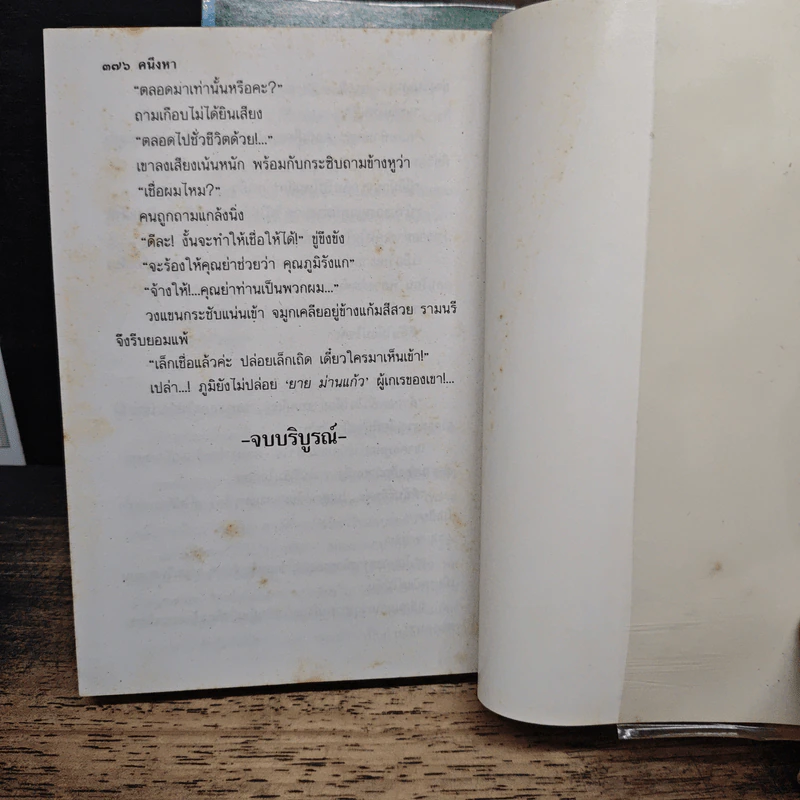 ๓๗๖ คนึงหา
“ตลอดมาเท่านั้นหรือคะ?”
ถามเกือบไม่ได้ยินเสียง
“ตลอดไปชั่วชีวิตด้วย!...”
เขาลงเสียงเน้นหนัก พร้อมกับกระซิบถามข้างหูว่า
“เชื่อผมไหม?”
คนถูกถามแกล้งนิ่ง
“ดีละ! งั้นจะทำให้เชื่อให้ได้!” ขู่ขึงขัง
“จะร้องให้คุณย่าช่วยว่า คุณภูมิรังแก”
“จ้างให้!...คุณย่าท่านเป็นพวกผม...”
วงแขนกระชับแน่นเข้า จมูกเคลียอยู่ข้างแก้มสีสวย รามนรี
จึงรีบยอมแพ้
“เล็กเชื่อแล้วค่ะ ปล่อยเล็กเถิด เดี๋ยวใครมาเห็นเข้า!”
เปล่า...! ภูมิยังไม่ปล่อย ‘ยาย ม่านแก้ว’ ผู้เกเรของเขา!...
–จบบริบูรณ์–